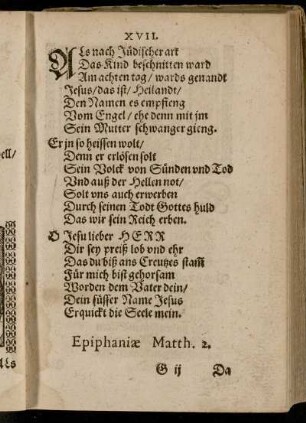 XVII.
ALs nach Jüdischer art
Das Kind beschnitten ward
Am achten tag / wards genandt
Jesus / das ist / Heilandt /
Den Namen es empfieng
Vom Engel / ehe denn mit jm
Sein Mutter schwanger gieng.
Er jn so heissen wolt /
Denn er erlösen solt
Sein Volck von Sünden vnd Tod
Vnd auß der Hellen not /
Solt vns auch erwerben
Durch seinen Todt Gottes huld
Das wir sein Reich erben.
O Jesu lieber HERR
Dir sey preiß lob vnd ehr
Das du biß ans Creutzes stam̃
Für mich bist gehorsam
Worden dem Vater dein /
Dein süsser Name Jesus
Erquickt die Seele mein.
Epiphaniæ Matth. 2.
G ij Da
ell /
Als